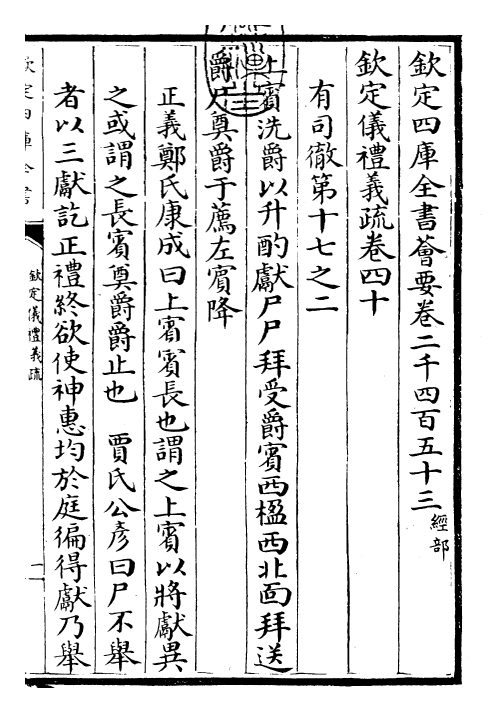 欽定四庫全書薈要卷二千四百五十三 經部
欽定儀禮義疏卷四十
有司徹第十七之二
上賓洗爵以升酌獻尸尸拜受爵賓西楹西北面拜送
爵尸奠爵于薦左賓降
正義鄭氏康成曰上賓賓長也謂之上賓以將獻異
之或謂之長賓奠爵爵止也 賈氏公彥曰尸不舉
者以三獻訖正禮終欲使神惠均於庭徧得獻乃舉
欽定四庫全書
欽定儀禮義疏